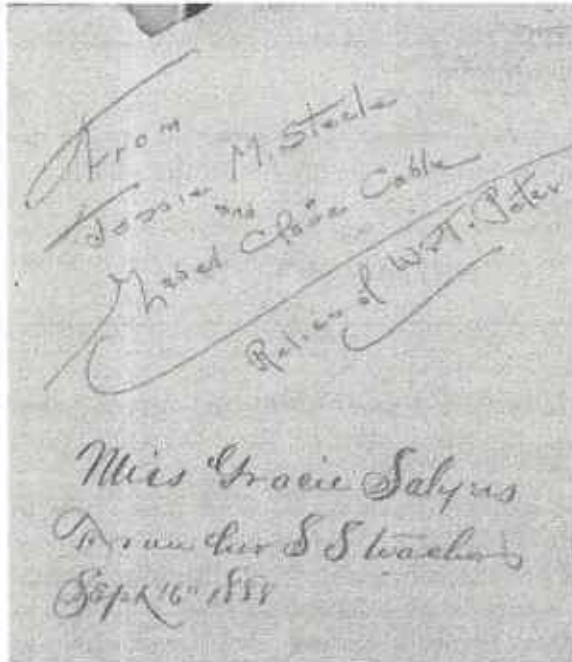 From
Jessie M. Steele
and
Cable
Relics of Wm. T. Peter
Miss Gracie Salyers
From her S S teacher
Sept 16" 1888